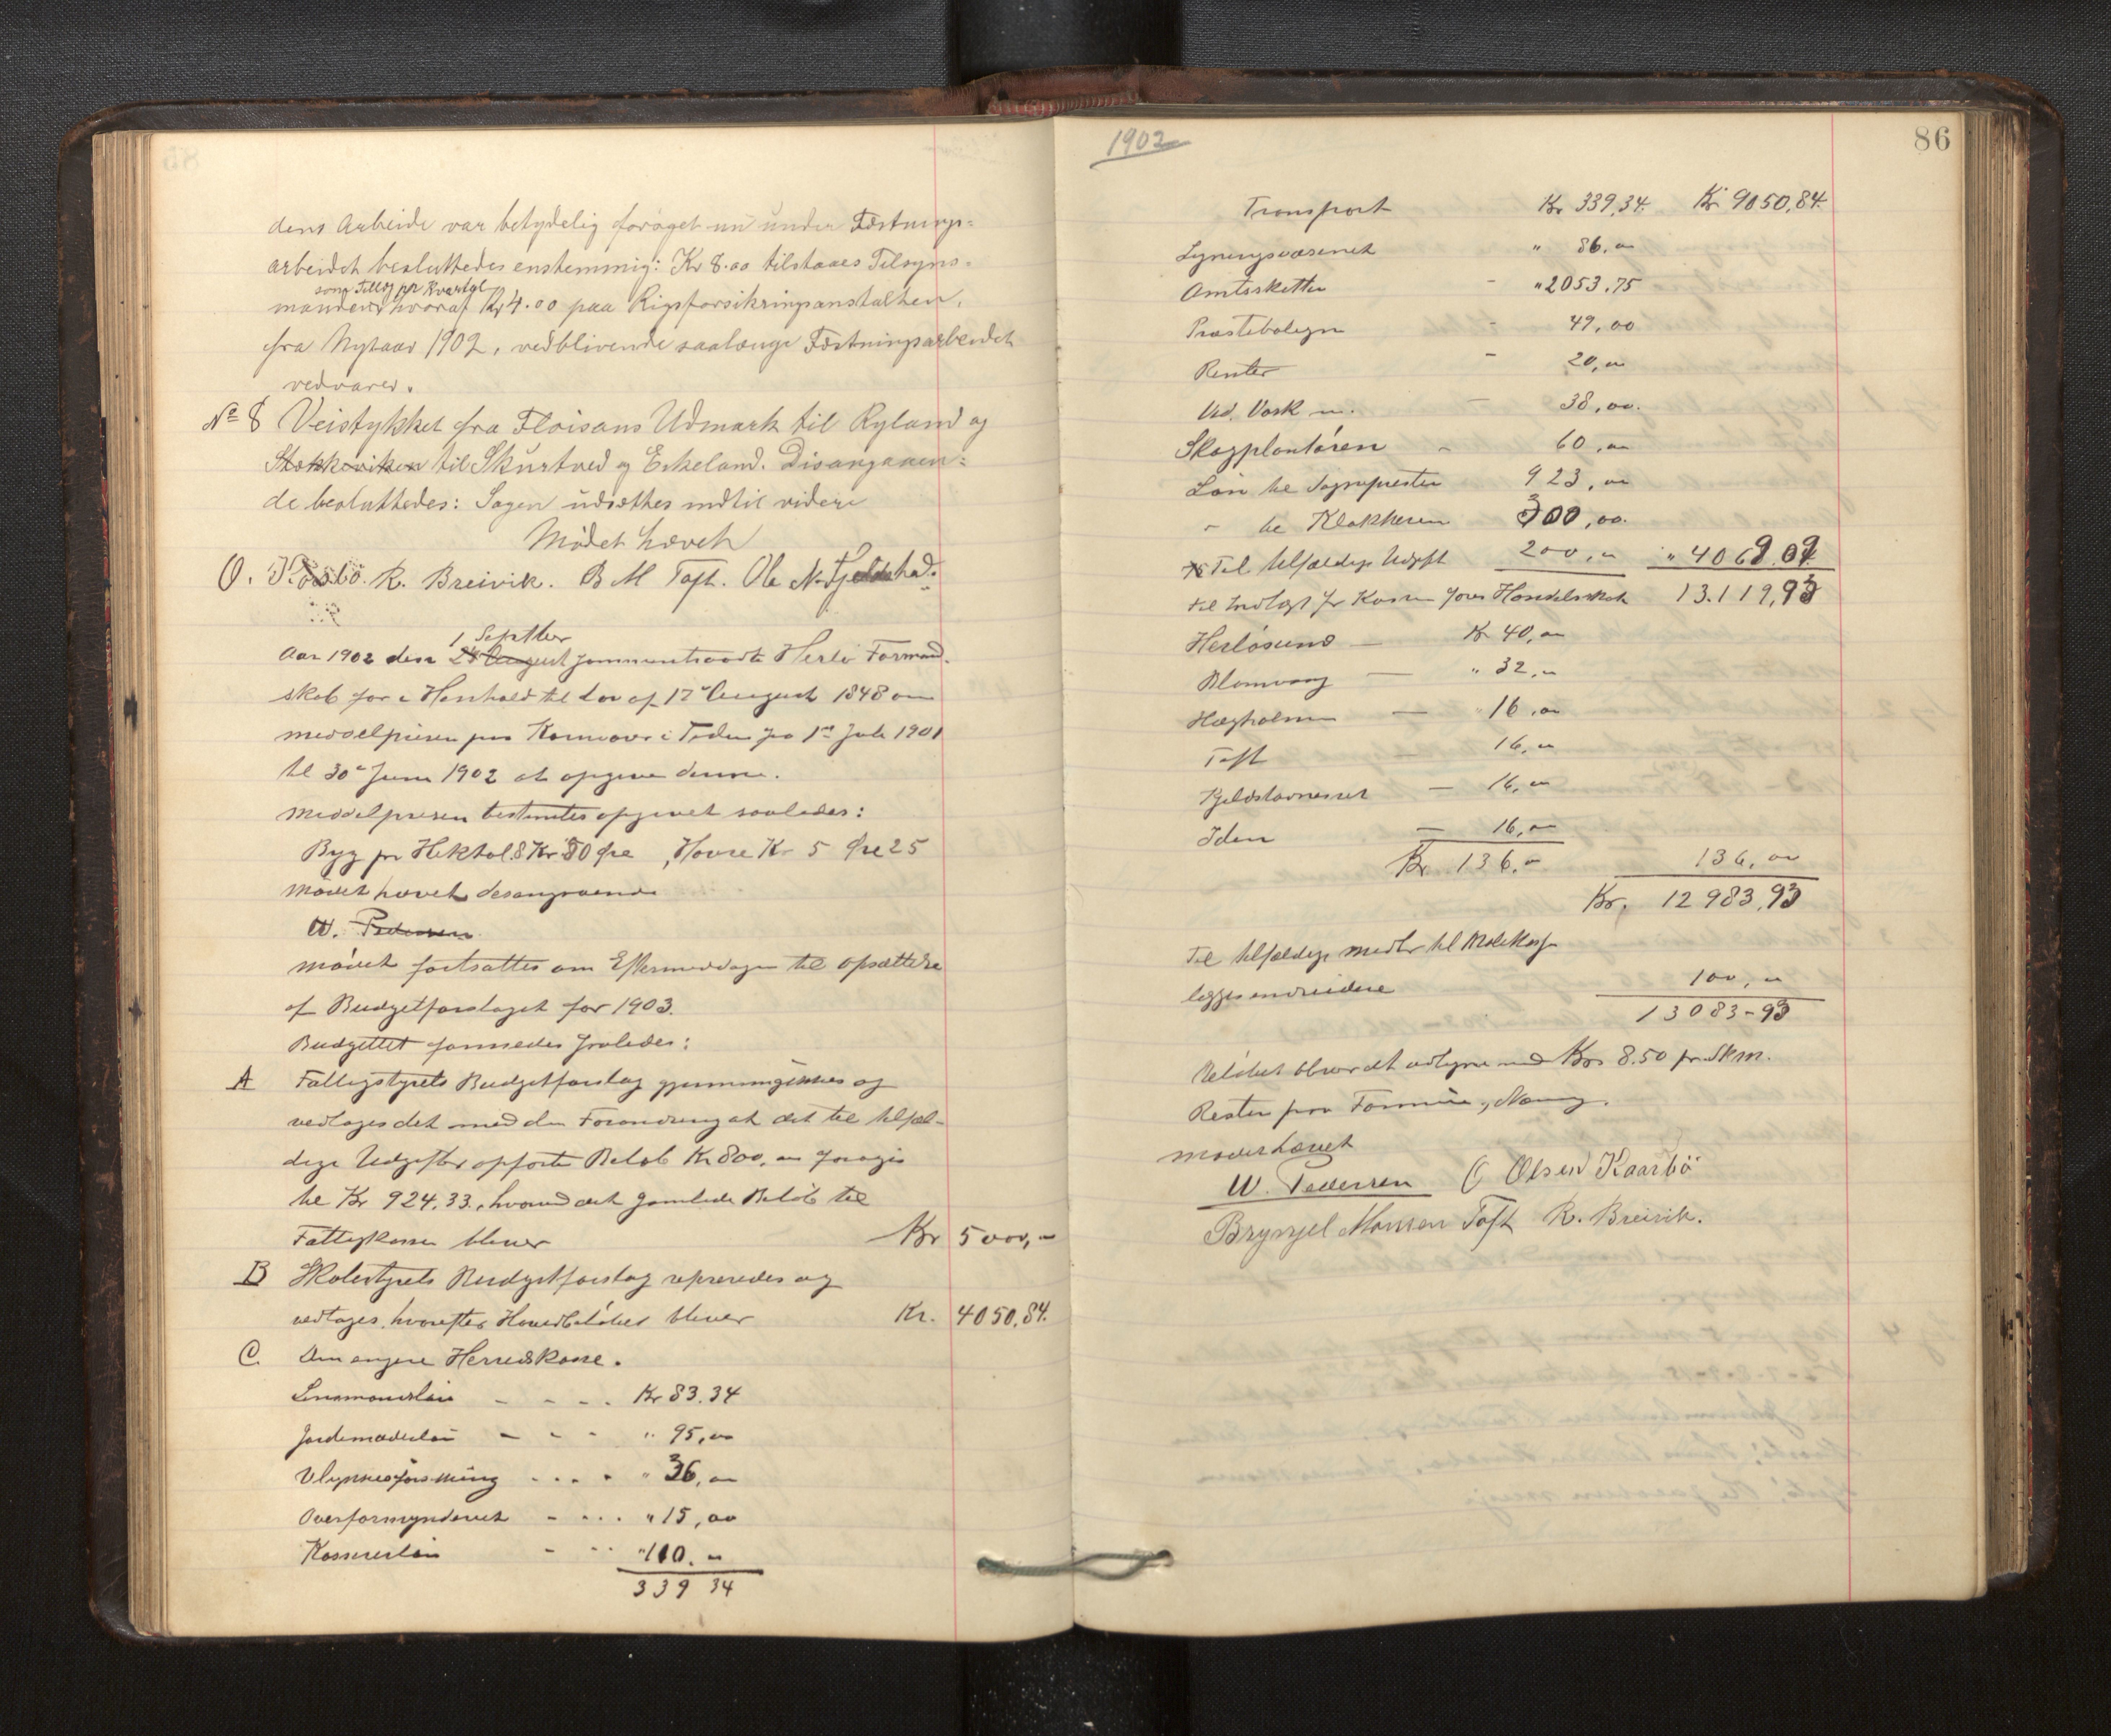 dens Arbeide var betydelig forøget nu under Fæstnings-
arbeidet besluttedes enstemmig: Kr 8.00 tilstaaes Tilsyns-
som Tillæg pr Kvartal
manden hvoraf Kr 4.00 paa Rigsforsikringsanstalten,
fra Nytaar 1902, vedblivende saalænge Fæstningsarbeidet
vedvarer.
No 8 Veistykket fra Floisans Udmark til Ryland og
Stokkeviken til Skurtved og Eikeland. Disangaaen-
de besluttedes: Sagen udsættes indtil videre
Mødet hævet
O. Kaarbø. R. Breivik. B M Toft. Ole N. Fjeldstad.
1 Septbr
Aar 1902 den 28 August sammentraadte Herlø Formand-
skab for i Henhold til Lov af 17 August 1848 om
middelprisen paa Kornvarer i Tiden fra 1ste Juli 1901
til 30te Juni 1902 at opgive denne.
Middelprisen bestemtes opgivet saaledes:
Byg pr Hektol. 8 Kr 80 Øre, Havre Kr 5 Øre 25
Mødet hævet desangaaende
W. Pedersen
Mødet fortsattes om Eftermiddagen til opsættelse
af Budgetforslaget for 1903.
Budgettet formedes saaledes:
A Fattigstyrets Budgetforslag gjennemgikkes og
vedtoges det med den Forandring at det til tilfæl-
dige Udgifter opførte Beløb Kr 800,00 forøges
til Kr 924.33, hvorved det samlede Beløb til
Fattigkassen bliver Kr 5000,-
B Skolestyrets Budgetforslag refereredes og
vedtoges, hvorefter Hovedbeløbet bliver Kr. 4050.84.
C. Angaaende Herredskasse.
Lensmandsløn - - - - Kr 83.34
Jordemoderløn - - - " 95,00
Ulykkesforsikring - - - - " 36,00
Overformynderiet - - - - " 15,00
Kassererløn - - - " 110.00
339 34
1902
86
Transport Kr 339,34. Kr 9050,84.
Ligningsvæsenet " 86.00
Amtsskatten - " 2053.75
Præstebolign - 49,00
Renter - 20,00
Ved. Vask m. - 38,00.
Skogplantøren - 60,00
Løn til Sognepresten 923,00
" til Klokkeren 300,00.
Til tilfældige Udgift 200,00 " 4069.09
til Indtægt for Kassen fores Handelsskat 13.119,93
Herløsund - Kr 40,00
Blomvaag - " 32,00
Hægholmen - " 16,00
Toft - 16,00
Kjeldstavnesset - 16,00
Iden - 16,00
Kr 136,00 136,00
Kr. 12983,93
Til tilfældige midler til Molekasse
lægges endvidere 100,00
13083-93
Beløbet blever at udligne med Kr 8.50 pr. Skm.
Resten paa Formue og Næring.
Mødet hævet
W. Pedersen O Olsen Kaarbø
Brynjel Monsen Toft R. Breivik.